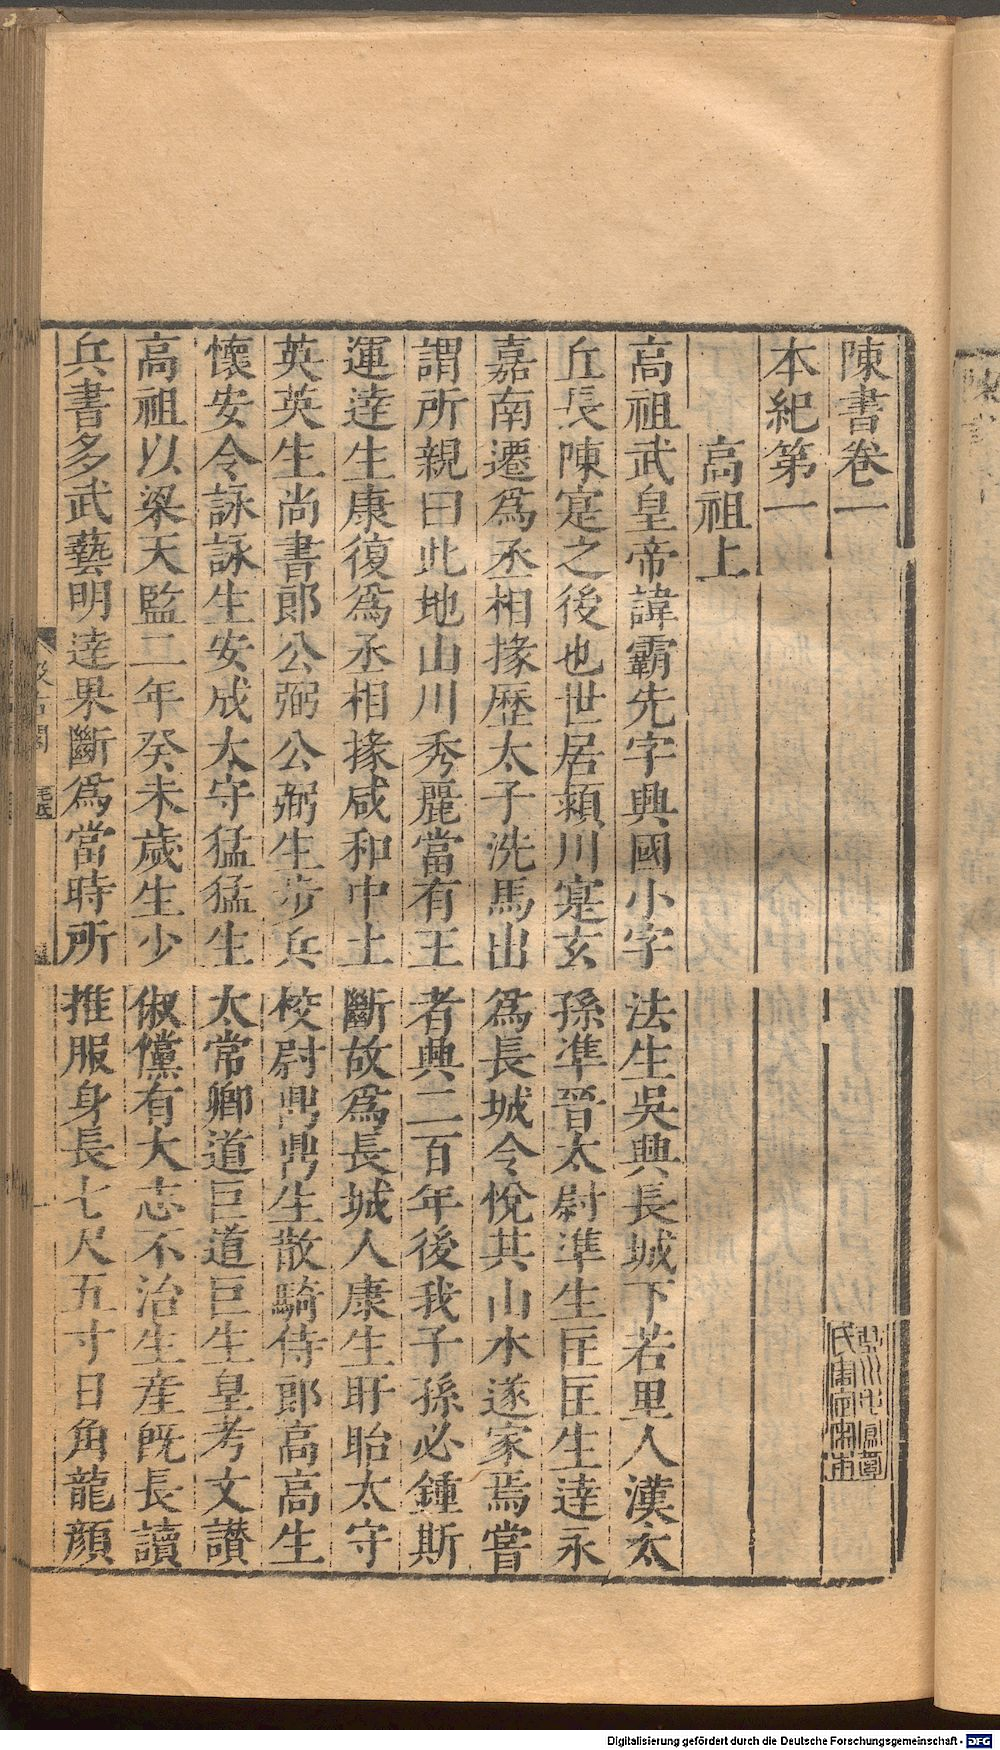 陳書卷一
本紀第一
高祖上
高祖武皇帝諱霸先字興國小字法生吳興長城下若里人漢太
丘長陳寔之後也世居潁川寔玄孫準晉太尉準生匡匡生達永
嘉南遷爲丞相掾歷太子洗馬出爲長城令悅其山水遂家焉嘗
謂所親曰此地山川秀麗當有王者興二百年後我子孫必鍾斯
運達生康復爲丞相掾咸和中土斷故爲長城人康生盱眙太守
英英生尚書郎公弼公弼生步兵校尉鼎鼎生散騎侍郎高高生
懷安令詠詠生安成太守猛猛生太常卿道巨道巨生皇考文讃
高祖以梁天監二年癸未歲生少俶儻有大志不治生産旣長讀
兵書多武藝明達果斷爲當時所推服身長七尺五寸日角龍顔
汲古閣
毛氏
一
Digitalisierung gefördert durch die Deutsche Forschungsgemeinschaft - DFG